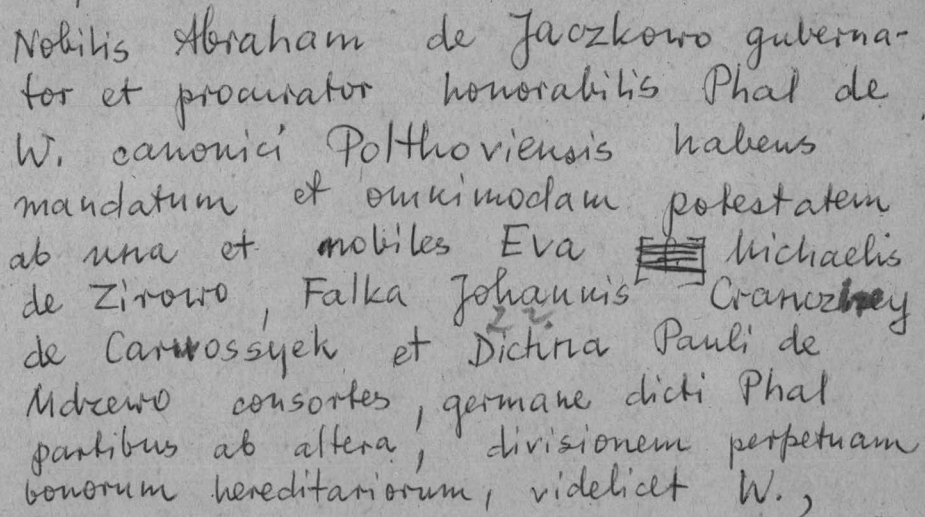 Nobilis Abraham de Jaczkowo guberna-
tor et procurator honorabilis Phal de
W. canonici Polthoviensis habens
mandatum et omnimodam potestatem
ab una et nobiles Eva Michaelis
de Zirowo, Falka Johannis
de Carwossyek et Dichna Pauli de
Mdzewo consortes, germane dicti Phal
partibus ab altera, divisionem perpetuam
bonorum hereditariorum, videlicet W.,